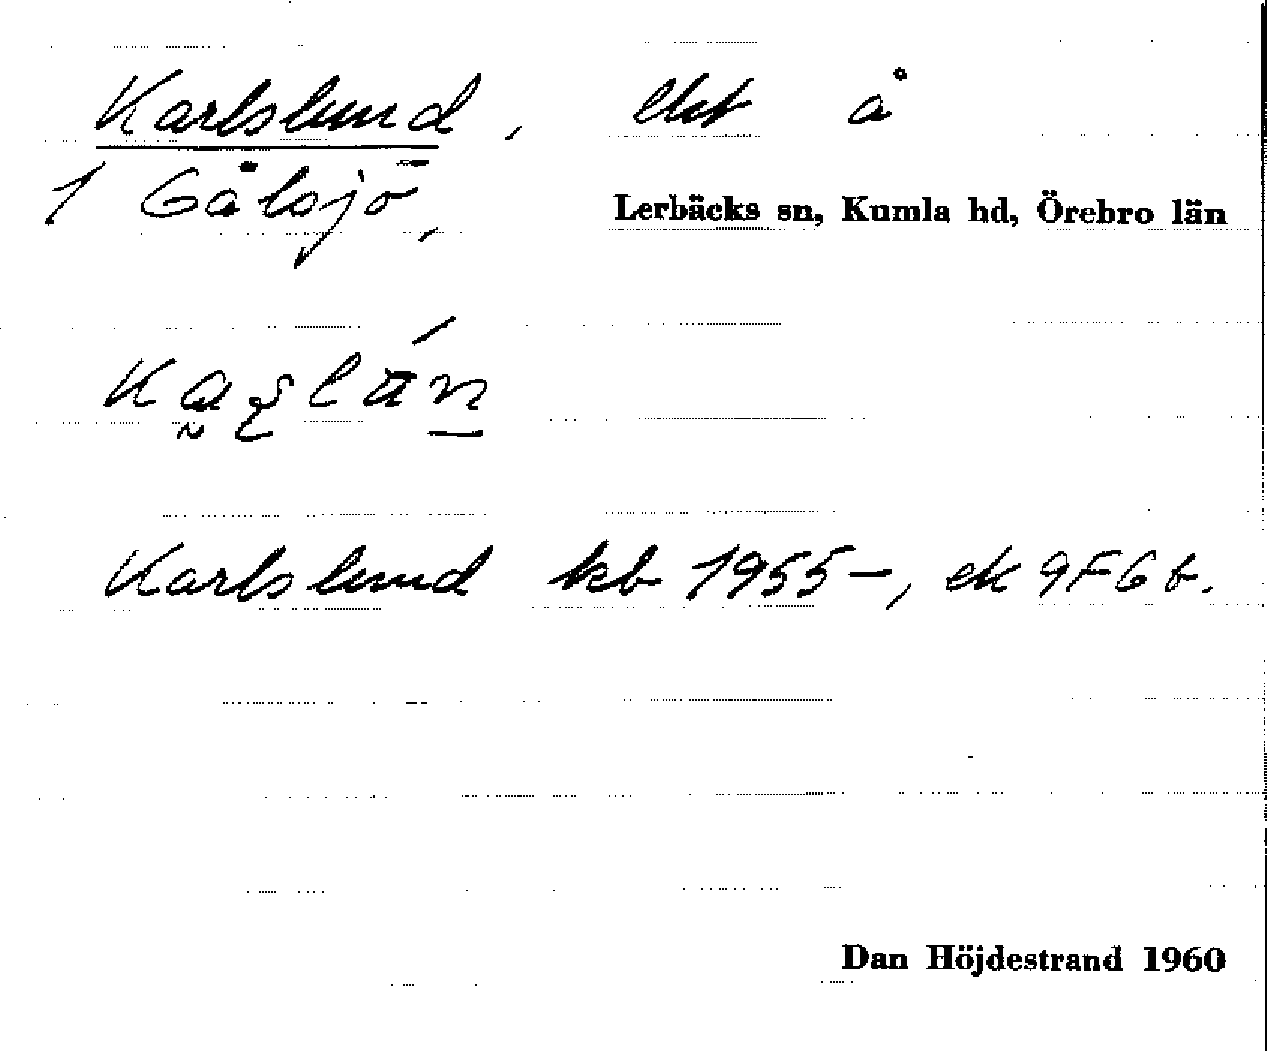 Karlslund, lht å
1 Gålsjö, Lerbäcks sn, Kumla hd, Örebro län
Karlslund kb 1955–, ek 9F6b.
Dan Höjdestrand 1960